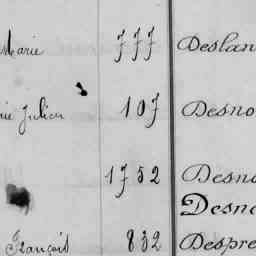 Marie 777 Deslan
ie Julien 107 Desno
1752 Desno
Desne
François 832 Despre